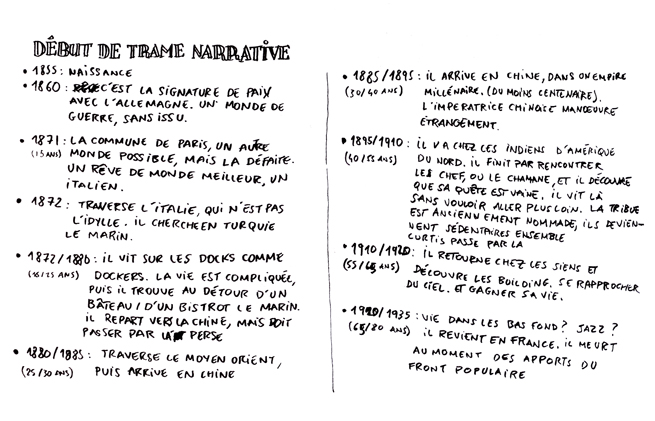 DÉBUT DE TRAME NARRATIVE
• 1855 : NAISSANCE
• 1860 : C'EST LA SIGNATURE DE PAIX
AVEC L'ALLEMAGNE. UN MONDE DE
GUERRE, SANS ISSU.
• 1871 : LA COMMUNE DE PARIS, UN AUTRE
(15 ANS) MONDE POSSIBLE, MAIS LA DÉFAITE.
UN RÊVE DE MONDE MEILLEUR, UN
ITALIEN.
• 1872 : TRAVERSE L'ITALIE, QUI N'EST PAS
L'IDYLLE. IL CHERCHE EN TURQUIE
LE MARIN.
• 1872/1880 : IL VIT SUR LES DOCKS COMME
(16/25 ANS) DOCKERS. LA VIE EST COMPLIQUÉE,
PUIS IL TROUVE AU DÉTOUR D'UN
BÂTEAU / D'UN BISTROT LE MARIN.
IL REPART VERS LA CHINE, MAIS DOIT
PASSER PAR LA PERSE
• 1880/1885 : TRAVERSE LE MOYEN ORIENT,
(25/30 ANS) PUIS ARRIVE EN CHINE
• 1885/1895 : IL ARRIVE EN CHINE, DANS UN EMPIRE
(30/40 ANS) MILLÉNAIRE. (DU MOINS CENTENAIRE).
L'IMPERATRICE CHINOISE MANŒUVRE
ÉTRANGEMENT.
• 1895/1910 : IL VA CHEZ LES INDIENS D'AMÉRIQUE
(40/55 ANS) DU NORD. IL FINIT PAR RENCONTRER
LES CHEF, OU LE CHAMANE, ET IL DÉCOUVRE
QUE SA QUÊTE EST VAINE. IL VIT LÀ
SANS VOULOIR ALLER PLUS LOIN. LA TRIBUE
EST ANCIENNEMENT NOMMADE, ILS DEVIEN-
NENT SÉDENTAIRES ENSEMBLE
CURTIS PASSE PAR LA
• 1910/1920 : IL RETOURNE CHEZ LES SIENS ET
(55/65 ANS) DÉCOUVRE LES BUILDING. SE RAPPROCHER
DU CIEL. ET GAGNER SA VIE.
• 1920/1935 : VIE DANS LES BAS FOND ? JAZZ ?
(65/80 ANS) IL REVIENT EN FRANCE. IL MEURT
AU MOMENT DES APPORTS DU
FRONT POPULAIRE